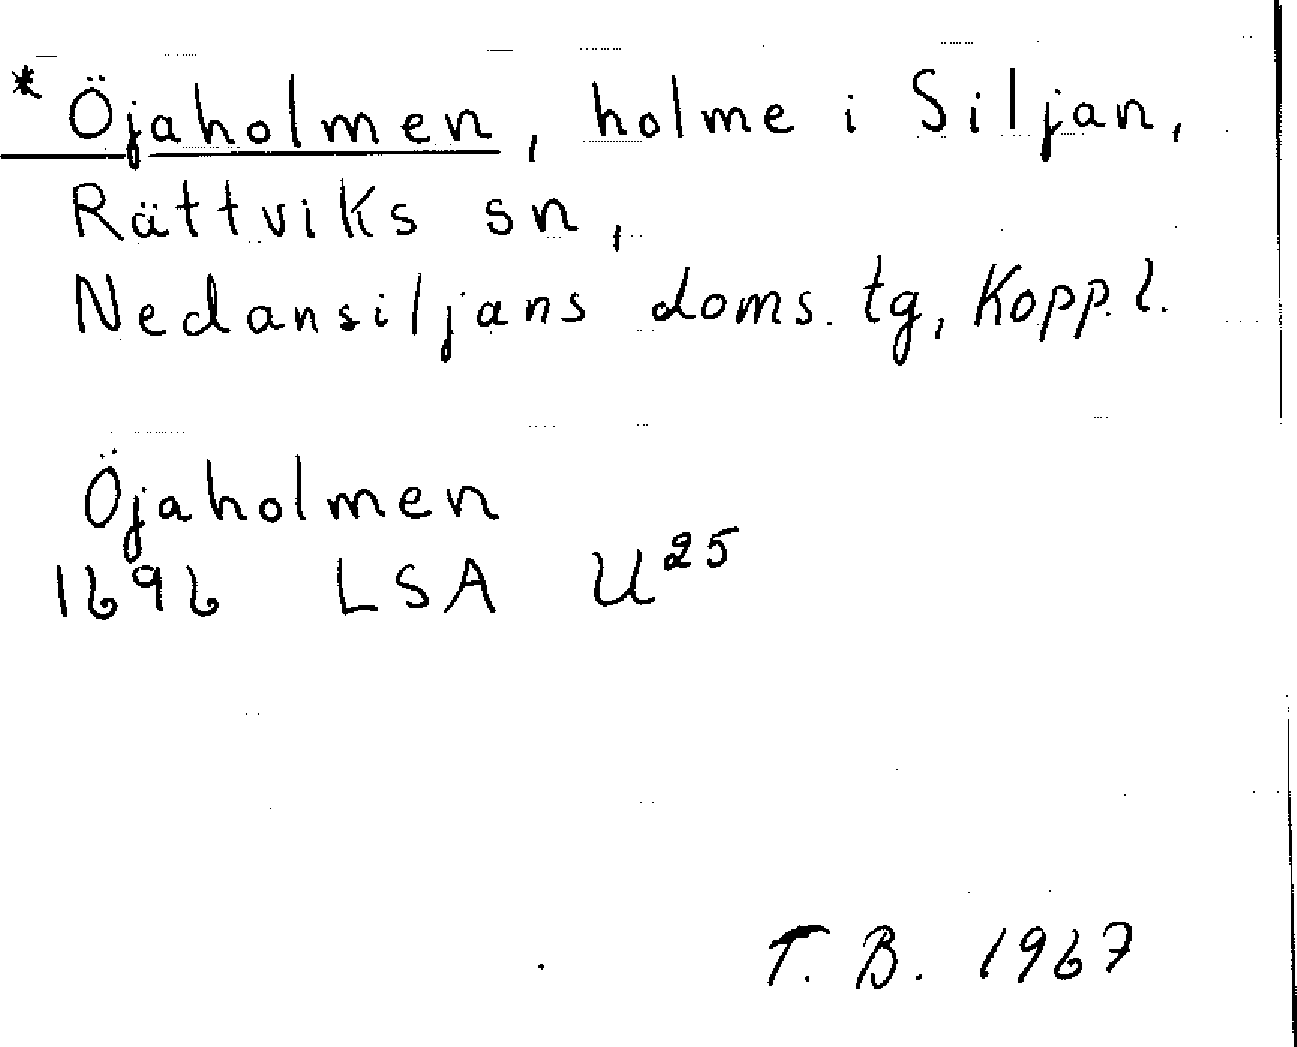 * Öjaholmen, holme i Siljan,
Rättviks sn,
Nedansiljans doms. tg, Kopp. l.
Öjaholmen
1696 LSA U²⁵
T. B. 1967